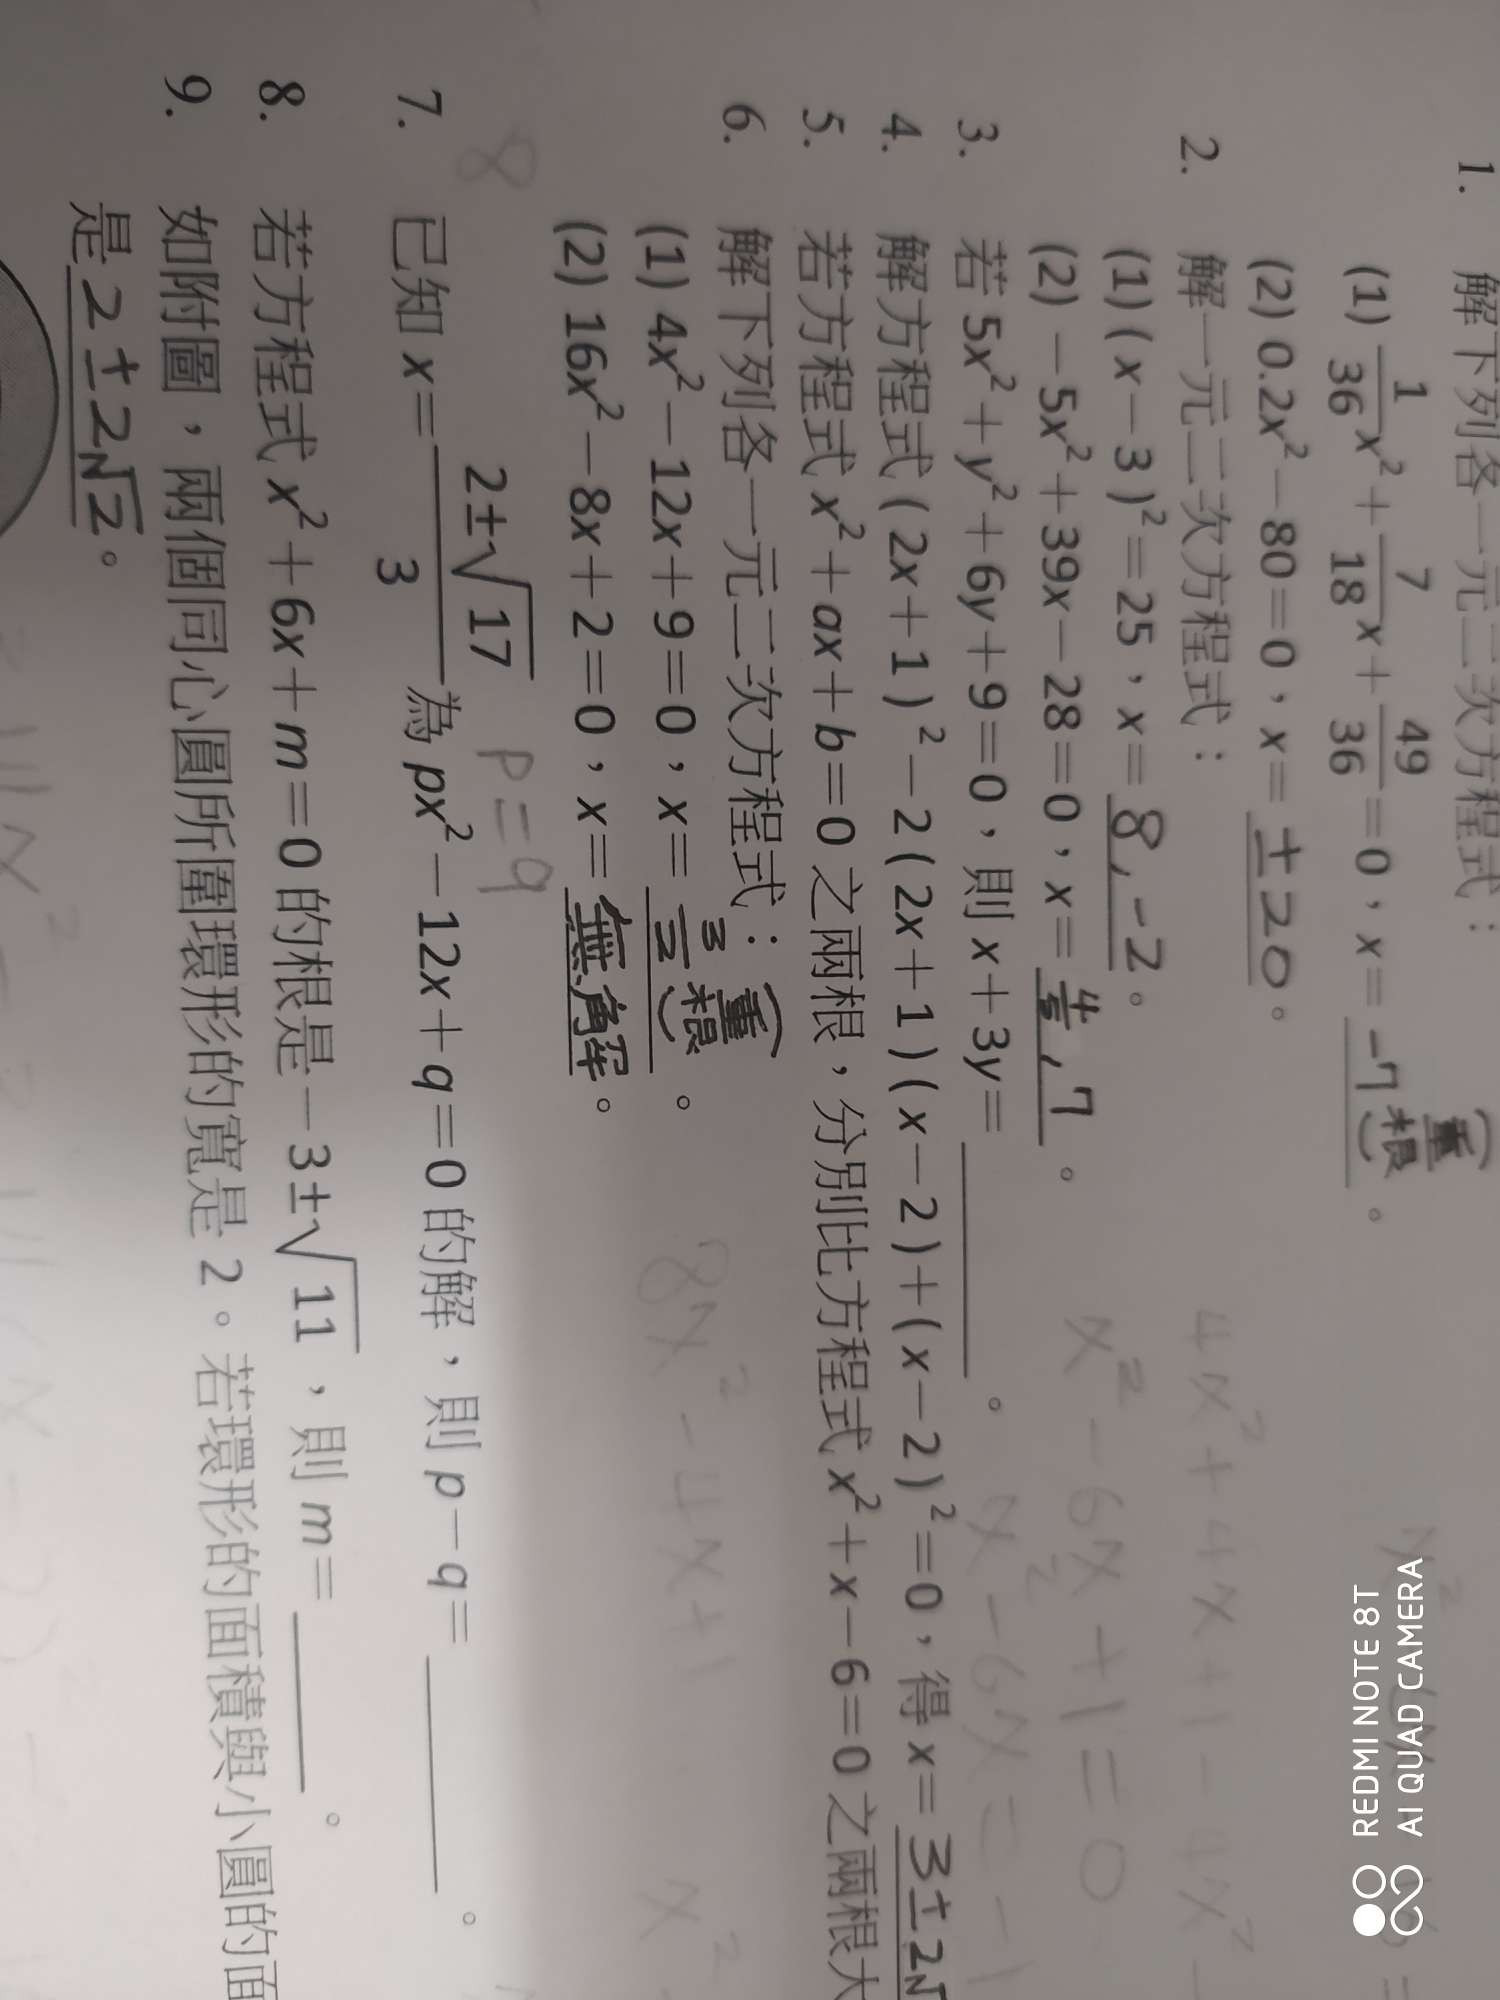 1. 解下列各一元二次方程式：
(1) 1/36 x²+7/18 x+49/36=0，x=-7(重根)。
(2) 0.2x²-80=0，x=±20。
2. 解一元二次方程式：
(1) (x-3)²=25，x=8,-2。
(2) -5x²+39x-28=0，x=4/5,7。
3. 若 5x²+y²+6y+9=0，則 x+3y=______。
4. 解方程式 (2x+1)²-2(2x+1)(x-2)+(x-2)²=0，得 x=3±2√
5. 若方程式 x²+ax+b=0 之兩根，分別比方程式 x²+x-6=0 之兩根大
6. 解下列各一元二次方程式：
(1) 4x²-12x+9=0，x=3/2(重根)。
(2) 16x²-8x+2=0，x=無解。
8 p=9
7. 已知 x=(2±√17)/3 為 px²-12x+q=0 的解，則 p-q=______。
8. 若方程式 x²+6x+m=0 的根是-3±√11，則 m=______。
9. 如附圖，兩個同心圓所圍環形的寬是 2。若環形的面積與小圓的面
是2±2√2。
4x²+4x+1-4x²-
x²-6x+1=0
x²-6x=-1
8x²-4x+1
x²
REDMI NOTE 8T
AI QUAD CAMERA